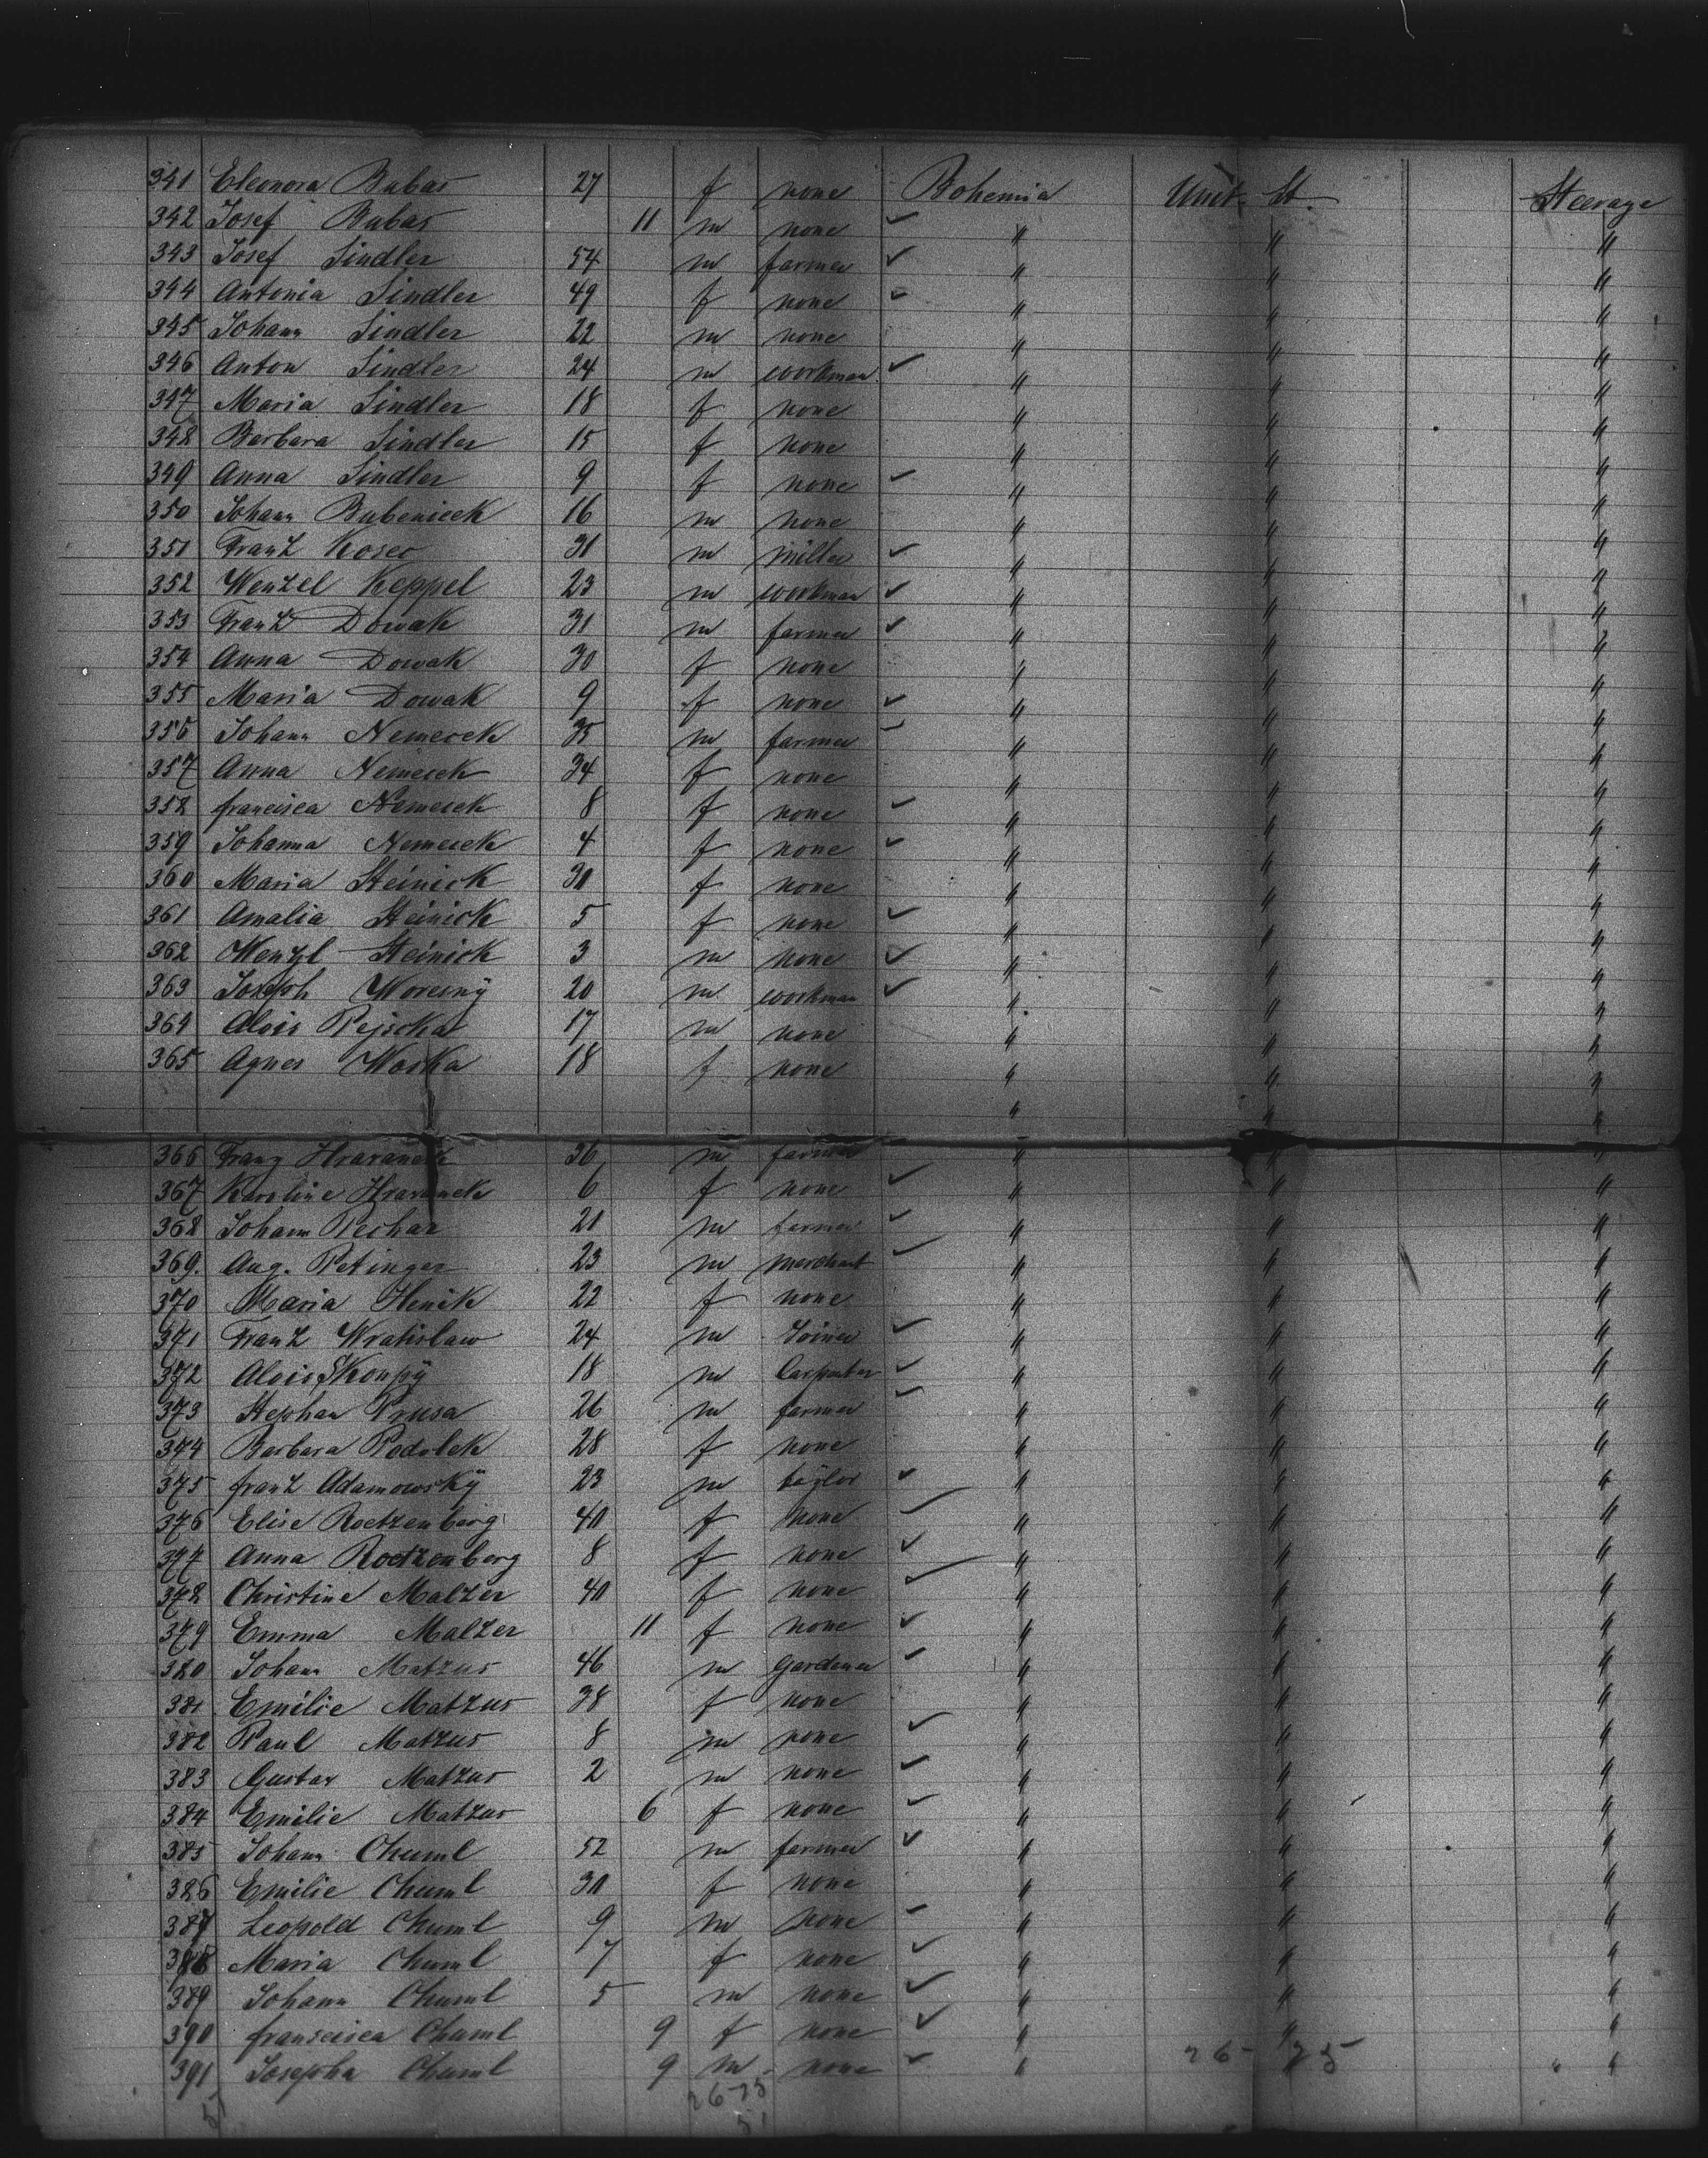 341 Eleonora Babas 27 f none Bohemia Unit. St. Steerage
342 Josef Babas 11 m none " " "
343 Josef Sindler 54 m farmer " " "
344 Antonia Sindler 49 f none " " "
345 Johann Sindler 22 m none " " "
346 Anton Sindler 24 m workman " " "
347 Maria Sindler 18 f none " " "
348 Barbara Sindler 15 f none " " "
349 Anna Sindler 9 f none " " "
350 Johann Bubenicek 16 m none " " "
351 Franz Kosec 31 m miller " " "
352 Wenzel Keppel 23 m workman " " "
353 Franz Dowak 31 m farmer " " "
354 Anna Dowak 30 f none " " "
355 Maria Dowak 9 f none " " "
356 Johann Nemecek 35 m farmer " " "
357 Anna Nemecek 34 f none " " "
358 francisca Nemecek 8 f none " " "
359 Johanna Nemecek 4 f none " " "
360 Maria Steinick 31 f none " " "
361 Amalia Steinick 5 f none " " "
362 Wenzl Steinick 3 m none " " "
363 Joseph Worecny 20 m workman " " "
364 Alois Pejscka 17 m none " " "
365 Agnes Waska 18 f none " " "
366 Franz Hravanek 36 m farmer " " "
367 Karoline Hravanek 6 f none " " "
368 Johann Pechar 21 m farmer " " "
369. Aug. Petinger 23 m merchant " " "
370 Maria Henik 22 f none " " "
371 Franz Wratislaw 24 m Joiner " " "
372 Alois Skoupÿ 18 m Carpenter " " "
373 Stephan Prusa 26 m farmer " " "
374 Barbara Podolek 28 f none " " "
375 franz Adamowskÿ 23 m taylor " " "
376 Elise Roetzenberg 40 f none " " "
377 Anna Roetzenberg 8 f none " " "
378 Christine Malzer 40 f none " " "
379 Emma Malzer 11 f none " " "
380 Johann Matzus 46 m Gardener " " "
381 Emilie Matzus 38 f none " " "
382 Paul Matzus 8 m none " " "
383 Gustav Matzus 2 m none " " "
384 Emilie Matzus 6 f none " " "
385 Johann Chuml 52 m farmer " " "
386 Emilie Chuml 31 f none " " "
387 Leopold Chuml 9 m none " " "
388 Maria Chuml 7 f none " " "
389 Johann Chuml 5 m none " " "
390 franscisca Chuml 9 f none " " "
391 Josepha Chuml 9 m none " 26- 25 " "
51 26-25
51